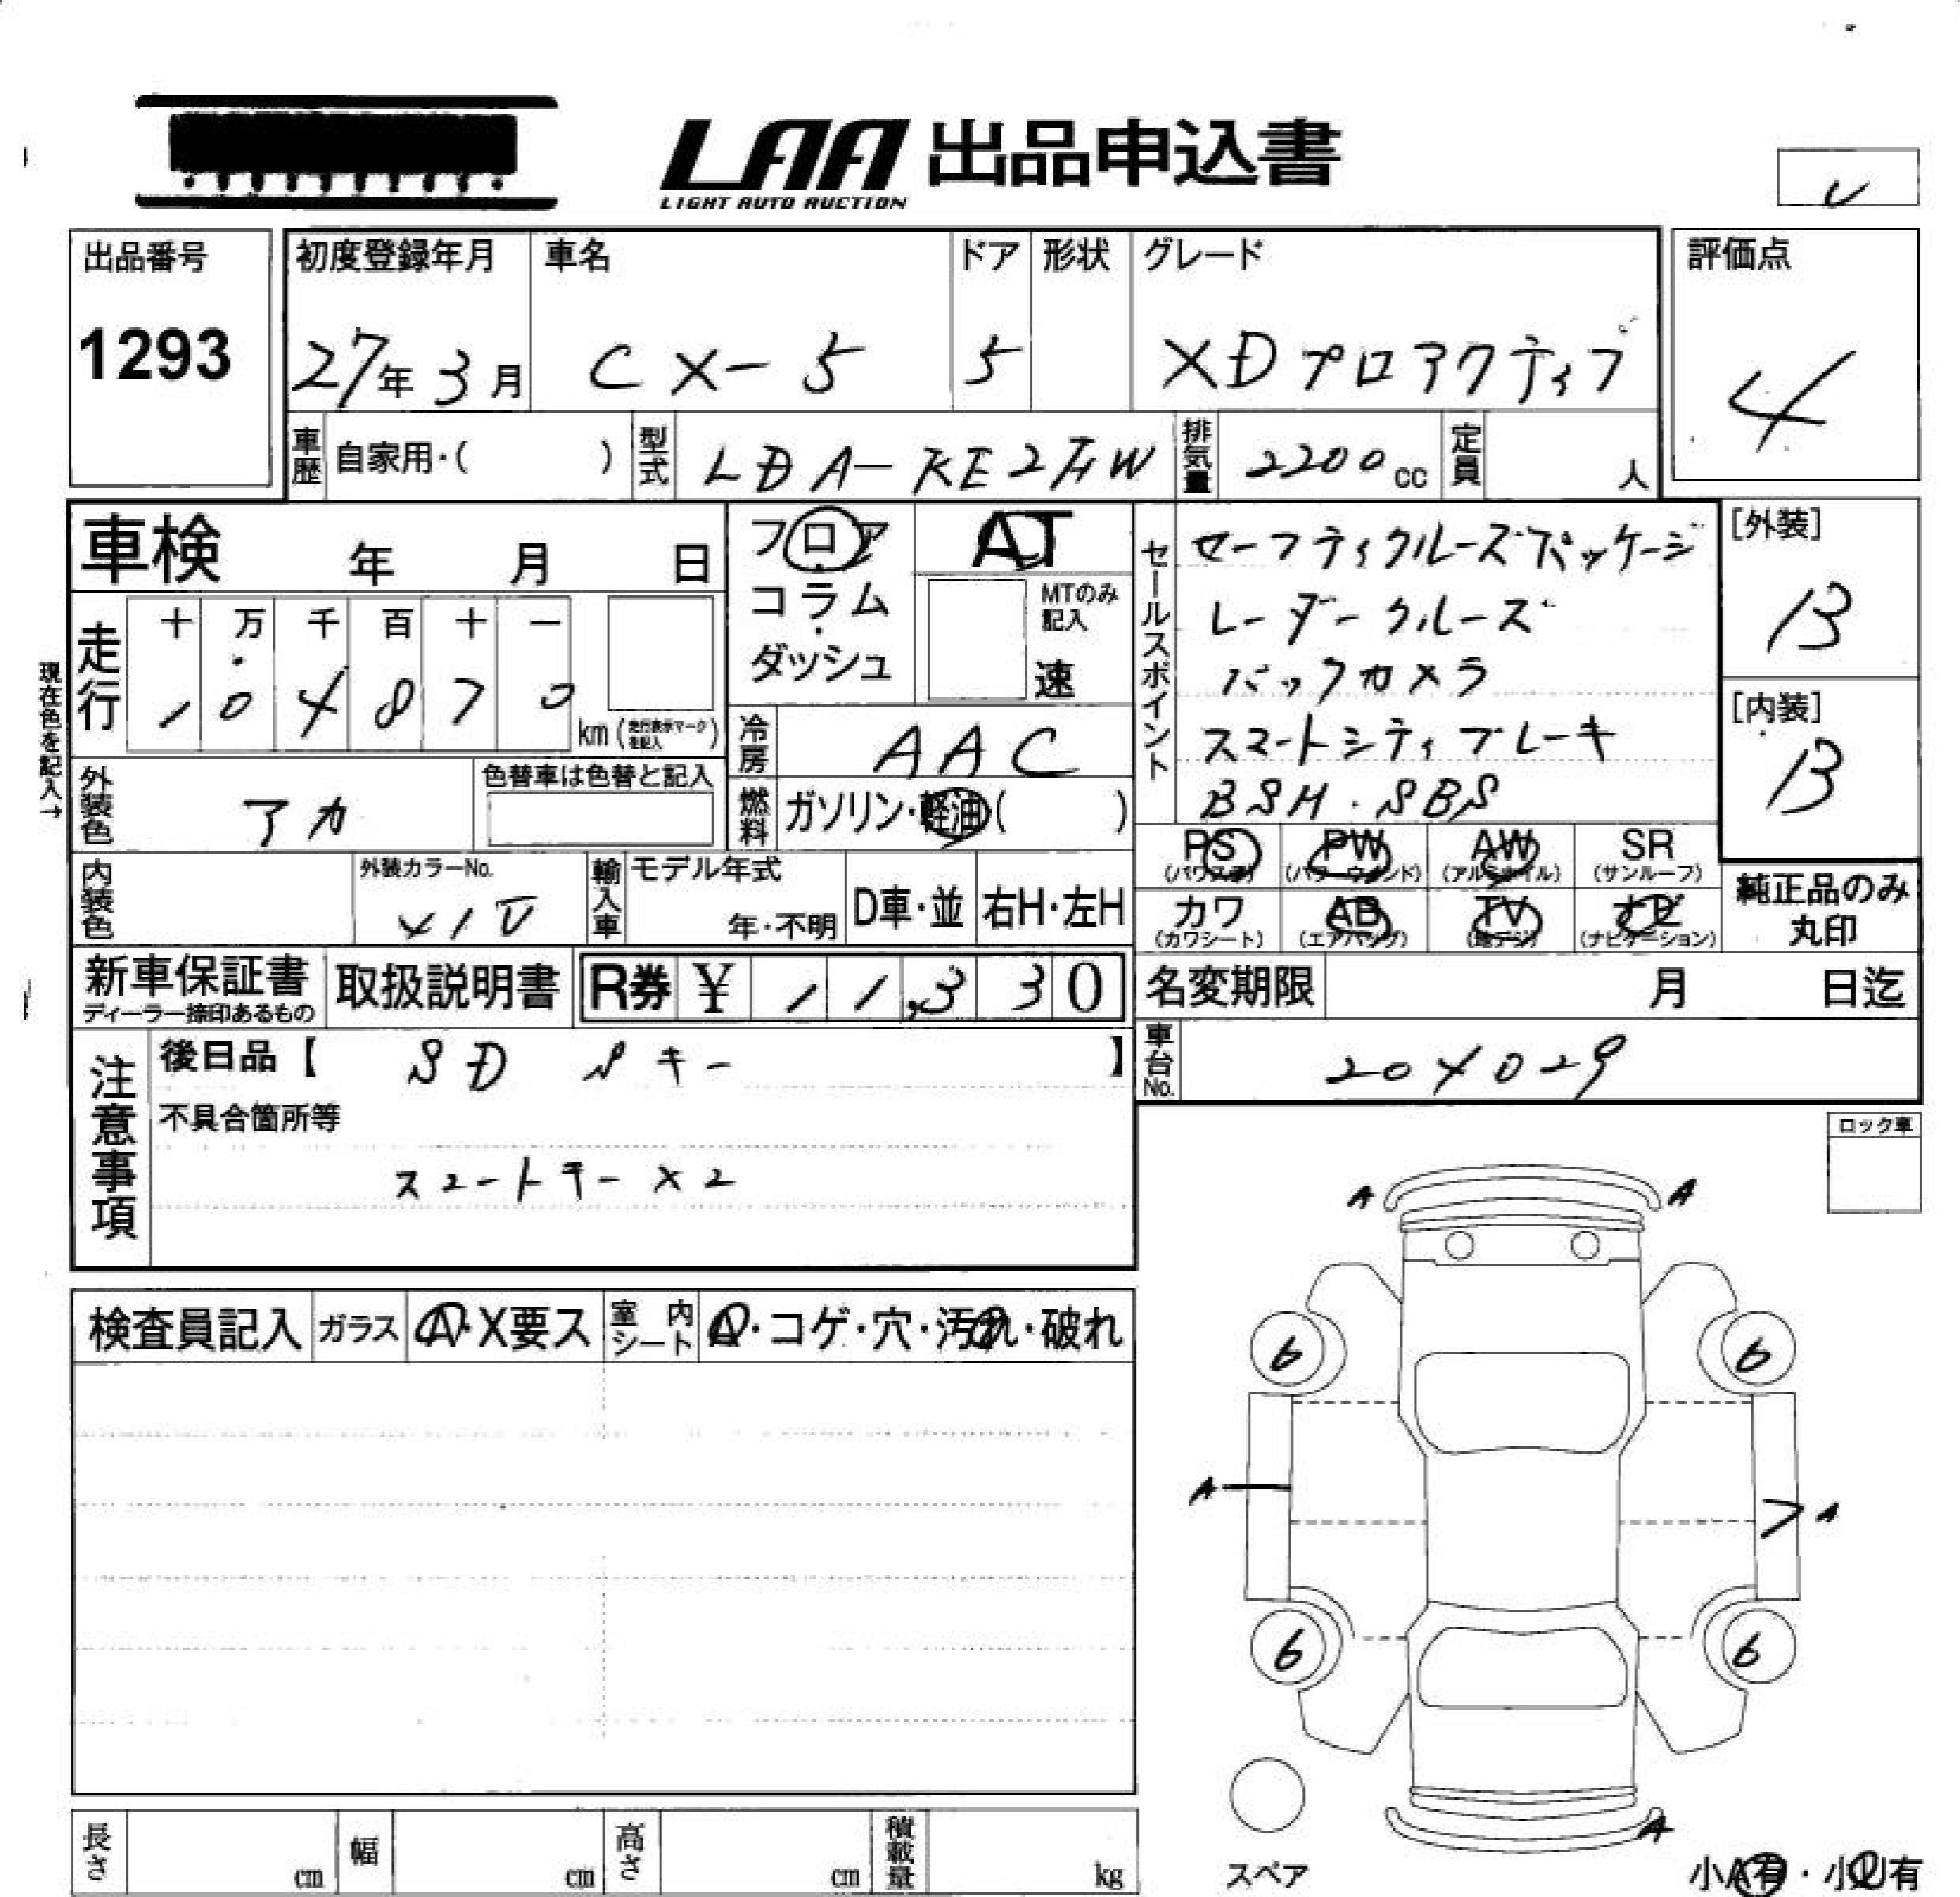 LAA 出品申込書
LIGHT AUTO AUCTION
出品番号
1293
初度登録年月
27年3月
車名
CX-5
ドア
5
形状
グレード
XDプロアクティブ
評価点
4
車歴
自家用・( )
型式
LDA-KE2FW
排気量
2200cc
定員
人
車検 年 月 日
フロア
コラム
ダッシュ
AT
MTのみ記入
速
セールスポイント
セーフティクルーズパッケージ
レーダークルーズ
バックカメラ
スマートシティブレーキ
BSM・SBS
[外装]
B
[内装]
B
現在色を記入→
走行
十 万 千 百 十 一
1 0 4 8 7 0
km (走行表示マークを記入)
冷房
AAC
外装色
アカ
色替車は色替と記入
燃料
ガソリン・軽油( )
内装色
外装カラーNo.
41V
輸入車
モデル年式
年・不明
D車・並
右H・左H
PS
(パワステ)
PW
(パワーウインド)
AW
(アルミホイル)
SR
(サンルーフ)
カワ
(カワシート)
AB
(エアバッグ)
TV
(地デジ)
ナビ
(ナビゲーション)
純正品のみ
丸印
新車保証書
ディーラー捺印あるもの
取扱説明書
R券 ¥ 11,330
名変期限 月 日迄
車台No.
204029
注意事項
後日品【 SD Sキー 】
不具合箇所等
スマートキー×2
ロック車
A A
検査員記入
ガラス
A・X要ス
室内シート
A・コゲ・穴・汚れ・破れ
6 6
A A
6 6
A
スペア
小A有・小U有
長さ cm
幅 cm
高さ cm
積載量 kg